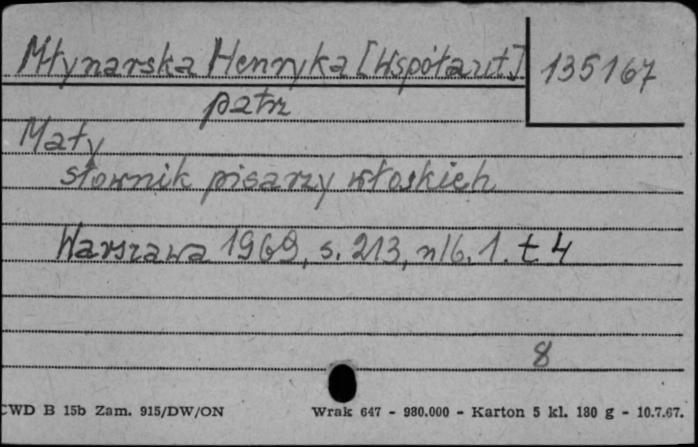 Młynarska Henryka [Współaut.] 135167
patrz
Mały
słownik pisarzy włoskich
Warszawa 1969, s. 213, nlb. 1. t 4
8
CWD B 15b Zam. 915/DW/ON Wrak 647 - 980.000 - Karton 5 kl. 180 g - 10.7.67.